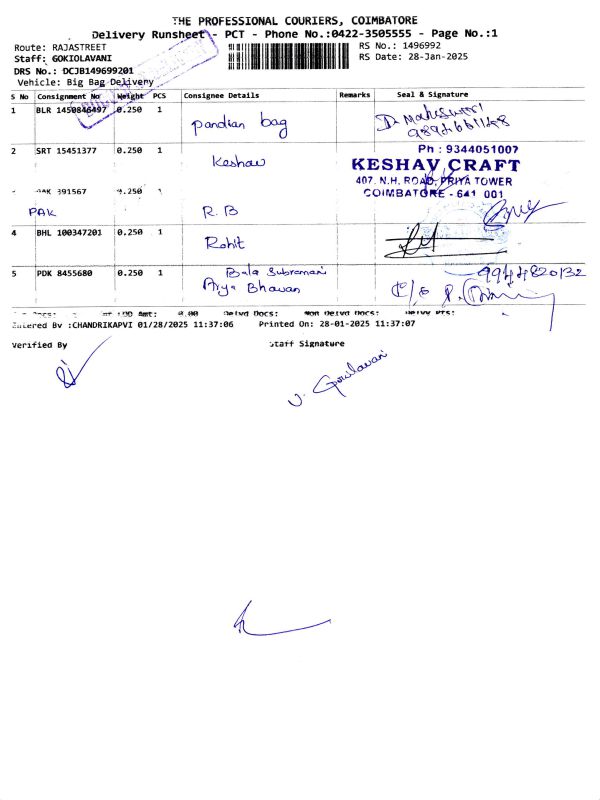 THE PROFESSIONAL COURIERS, COIMBATORE
Delivery Runsheet - PCT - Phone No.:0422-3505555 - Page No.:1
Route: RAJASTREET
RS No.: 1496992
Staff: GOKIOLAVANI
RS Date: 28-Jan-2025
DRS No.: DCJB149699201
Vehicle: Big Bag Delivery
S No Consignment No Weight PCS Consignee Details Remarks Seal & Signature
1 BLR 1450846497 0.250 1 pandian bag D. Maheswari
2 SRT 15451377 0.250 1 Keshav Ph : 9344051007
KESHAV CRAFT
407, N.H. ROAD, PRIYA TOWER
COIMBATORE - 641 001
PAK 391567 0.250 1
PAK R.B
4 BHL 100347201 0.250 1 Rohit
5 PDK 8455680 0.250 1 Bala Subramani 9944820132
Arya Bhavan C/o
0.00 Delvd Docs: Non Delvd Docs:
Entered By :CHANDRIKAPVI 01/28/2025 11:37:06 Printed On: 28-01-2025 11:37:07
Verified By Staff Signature
V. Gokilavani